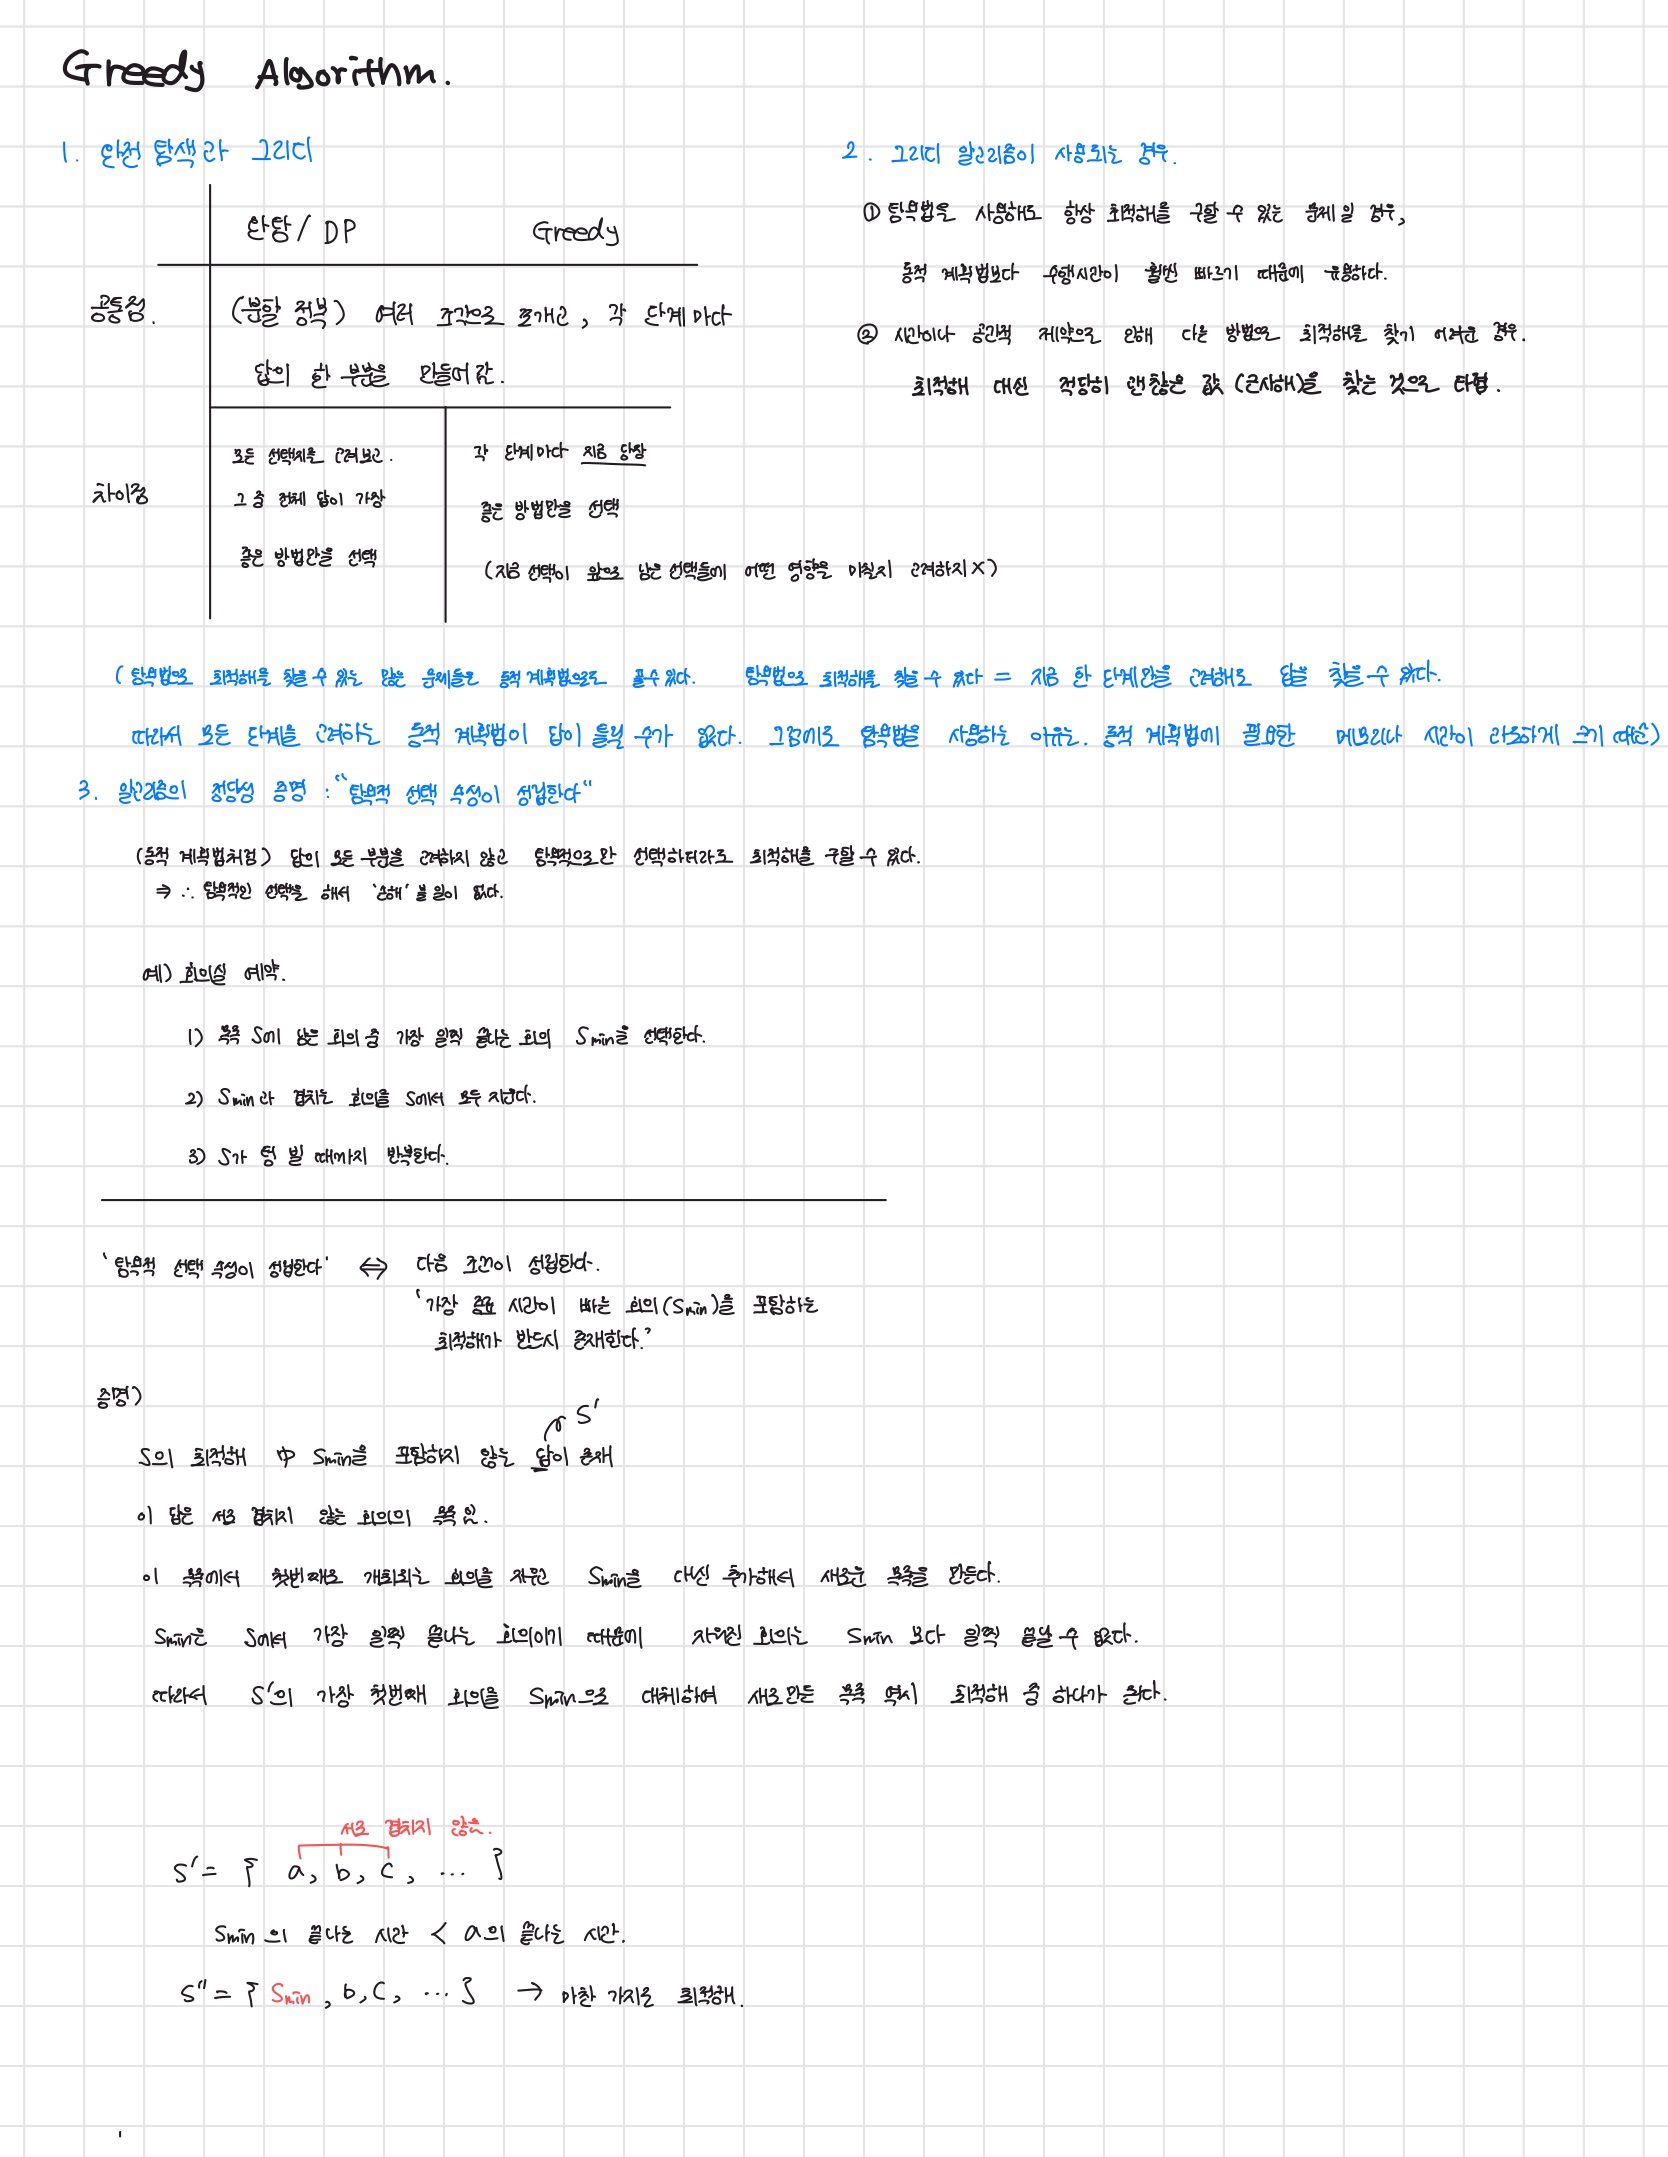 Greedy Algorithm.
1. 완전 탐색과 그리디
완탐 / DP
Greedy
공통점.
(분할 정복) 여러 조각으로 쪼개고, 각 단계마다
답의 한 부분을 만들어 감.
차이점
모든 선택지를 고려보고.
그 중 전체 답이 가장
좋은 방법만을 선택
각 단계마다 지금 당장
좋은 방법만을 선택
(지금 선택이 앞으로 남은 선택들에 어떤 영향을 미칠지 고려하지 X)
2. 그리디 알고리즘이 사용되는 경우.
① 탐욕법을 사용해도 항상 최적해를 구할 수 있는 문제일 경우,
동적 계획법보다 수행시간이 훨씬 빠르기 때문에 유용하다.
② 시간이나 공간적 제약으로 인해 다른 방법으로 최적해를 찾기 어려운 경우.
최적해 대신 적당히 괜찮은 값 (근사해)을 찾는 것으로 타협.
( 탐욕법으로 최적해를 찾을 수 있는 많은 문제들은 동적 계획법으로도 풀 수 있다. 탐욕법으로 최적해를 찾을 수 있다 = 지금 한 단계만을 고려해도 답을 찾을 수 있다.
따라서 모든 단계를 고려하는 동적 계획법이 답이 틀릴 수가 없다. 그럼에도 탐욕법을 사용하는 이유는. 동적 계획법에 필요한 메모리나 시간이 과도하게 크기 때문)
3. 알고리즘의 정당성 증명 : "탐욕적 선택 속성이 성립한다"
(동적 계획법처럼) 답의 모든 부분을 고려하지 않고 탐욕적으로만 선택하더라도 최적해를 구할 수 있다.
⇒ ∴ 탐욕적인 선택을 해서 '손해' 볼 일이 없다.
예) 회의실 예약.
1) 목록 S에 남은 회의 중 가장 일찍 끝나는 회의 Smin을 선택한다.
2) Smin과 겹치는 회의를 S에서 모두 지운다.
3) S가 텅 빌 때까지 반복한다.
'탐욕적 선택 속성이 성립한다' ⇔ 다음 조건이 성립한다.
'가장 종료 시간이 빠른 회의(Smin)을 포함하는
최적해가 반드시 존재한다.'
증명)
S'
S의 최적해 中 Smin을 포함하지 않는 답이 존재
이 답은 서로 겹치지 않는 회의의 목록임.
이 목록에서 첫번째로 개최되는 회의를 지우고 Smin을 대신 추가해서 새로운 목록을 만든다.
Smin은 S에서 가장 일찍 끝나는 회의이기 때문에 지워진 회의는 Smin 보다 일찍 끝날 수 없다.
따라서 S'의 가장 첫번째 회의를 Smin으로 대체하여 새로 만든 목록 역시 최적해 중 하나가 된다.
서로 겹치지 않음.
S' = { a, b, c, ... }
Smin의 끝나는 시간 < a의 끝나는 시간.
S" = { Smin, b, c, ... } → 마찬가지로 최적해.